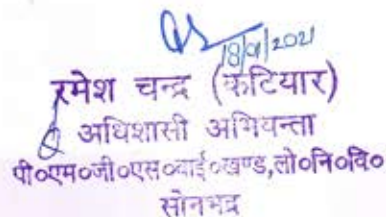 18/9/2021
रमेश चन्द्र (कटियार)
अधिशासी अभियन्ता
पी०एम०जी०एस०वाई०खण्ड,लो०नि०वि०
सोनभद्र